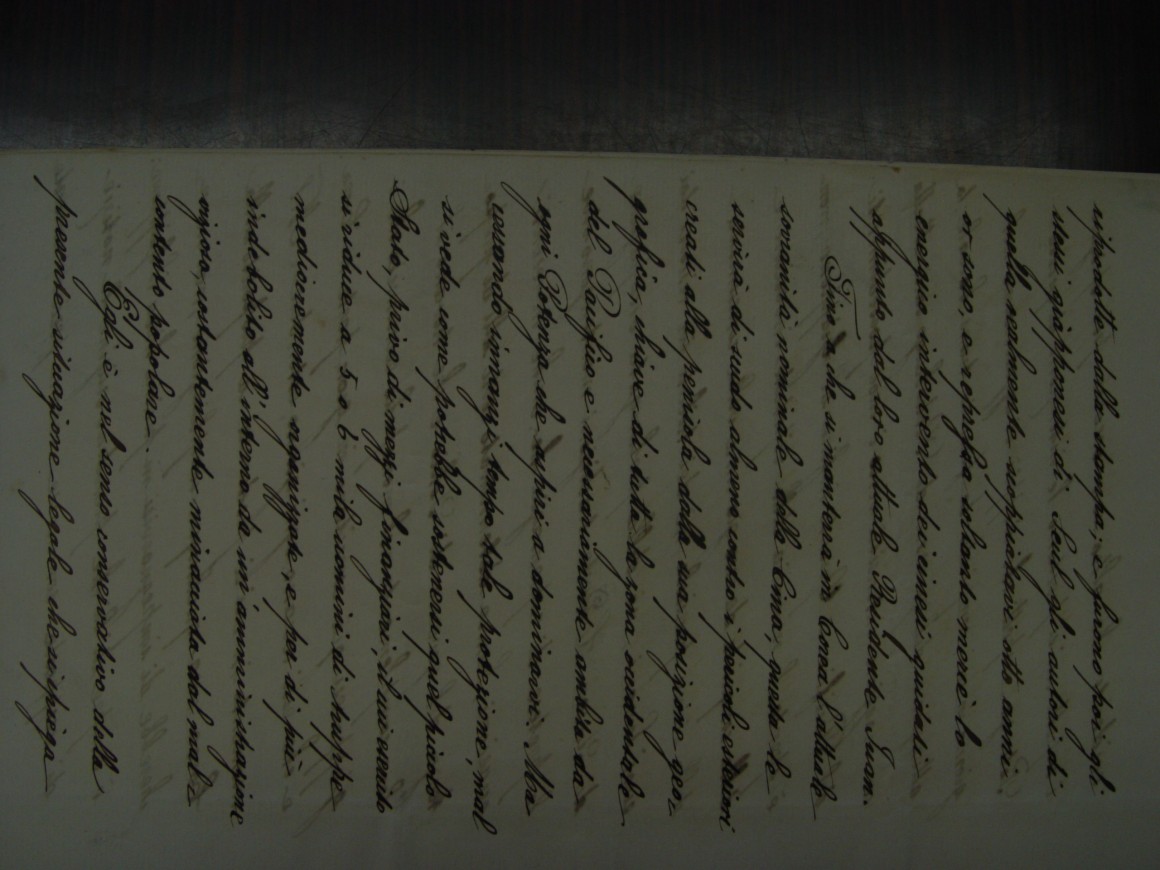 riprodotte dalla stampa; e furono poi gli
stessi giapponesi di Seul gli autori di
quella realmente scoppiata otto anni
or sono, e repressa soltanto mercè lo
energico intervento dei cinesi guidati
appunto dal loro attuale Residente Iuan.
Fino a che si manterrà in Corea l'attuale
sovranità nominale della Cina, questa le
servirà di scudo almeno contro i pericoli esteriori
creati alla penisola dalla sua posizione geo-
grafica, chiave di tutta la zona occidentale
del Pacifico e necessariamente ambita da
ogni Potenza che aspiri a dominarvi. Ma
cessando innanzi tempo tale protezione, mal
si vede come potrebbe sostenersi quel piccolo
Stato, privo di mezzi finanziari, il cui esercito
si riduce a 5 o 6 mila uomini di truppe
mediocremente organizzate, e per di più
indebolito all'interno da un'amministrazione
viziosa, costantemente minacciata dal mal-
contento popolare.
Egli è nel senso conservativo della
presente situazione legale che si spiega